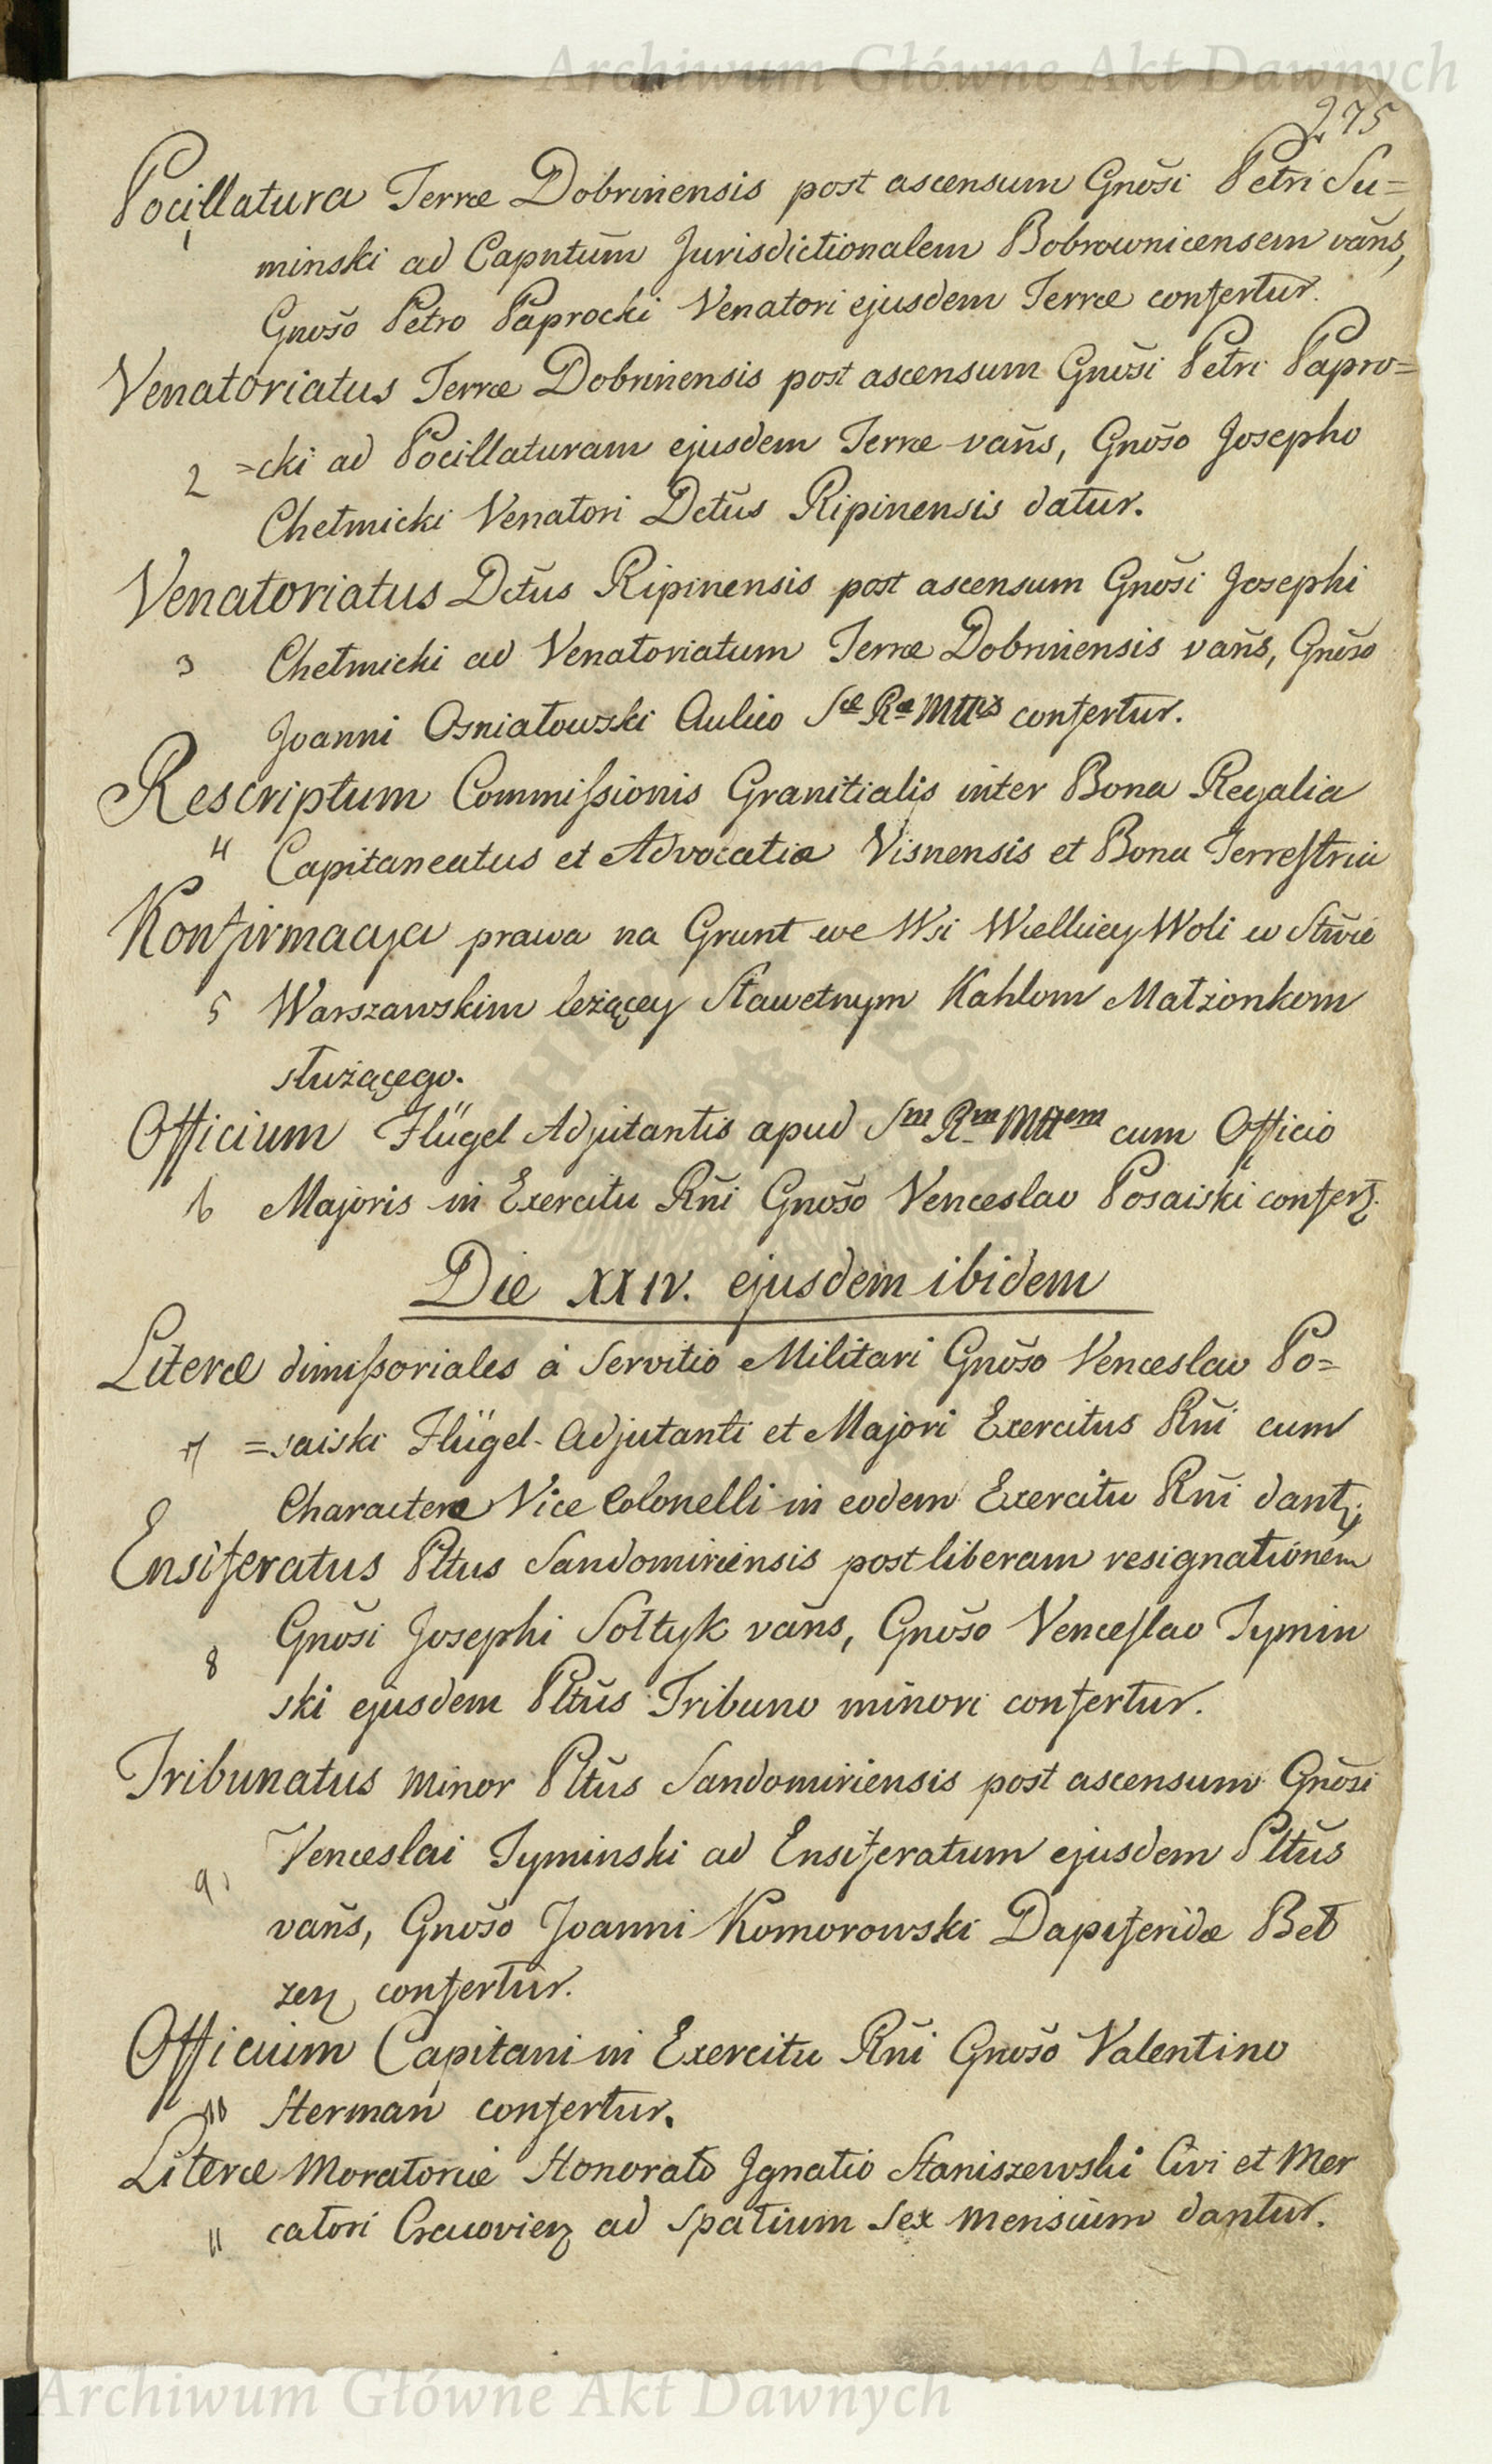 Archiwum Główne Akt Dawnych
275
Pocillatura Terræ Dobrinensis post ascensum Gnoši Petri Su=
1
minski ad Capntūm Jurisdictionalem Bobrownicensem vãns,
Gnošo Petro Paprocki Venatori ejusdem Terræ confertur.
Venatoriatus Terræ Dobrinensis post ascensum Gnoši Petri Papro=
2 =cki ad Pocillaturam ejusdem Terræ vãns, Gnošo Josepho
Chełmicki Venatori Dctũs Ripinensis datur.
Venatoriatus Dctũs Ripinensis post ascensum Gnoši Josephi
3 Chełmicki ad Venatoriatum Terræ Dobrinensis vãns, Gnošo
Joanni Osniałowski Aulico Sæ Ræ Mttis confertur.
Rescriptum Commißionis Granitialis inter Bona Regalia
4 Capitaneatus et Advocatiæ Visnensis et Bona Terrestria
Konfirmacya prawa na Grunt we Wsi Wielkiey Woli w Stwie
5 Warszawskim leżącey Sławetnym Kahlom Małżonkom
służącego.
Officium Flügel Adjutantis apud Sm Rm Mttem cum Officio
6 Majoris in Exercitu Rñi Gnošo Venceslao Posaiski confert
Die XXIV. ejusdem ibidem
Literæ dimißoriales à Servitio Militari Gnošo Venceslao Po=
7 =saiski Flügel-Adjutanti et Majori Exercitus Rñi cum
Charactere Vice Colonelli in eodem Exercitu Rñi dant;
Ensiferatus Pltus Sandomiriensis post liberam resignationem
8 Gnoši Josephi Sołtyk vãns, Gnošo Venceslao Tymin
ski ejusdem Pltũs Tribuno minori confertur.
Tribunatus minor Pltũs Sandomiriensis post ascensum Gnoši
9, Venceslai Tyminski ad Ensiferatum ejusdem Pltũs
vãns, Gnošo Joanni Komorowski Dapiferidæ Beł
zen confertur.
Officium Capitani in Exercitu Rñi Gnošo Valentino
10 Herman confertur.
Literæ Moratoriæ Honorato Ignatio Staniszewski Civi et Mer
11 catori Cracovien ad spatium sex mensium dantur.
Archiwum Główne Akt Dawnych